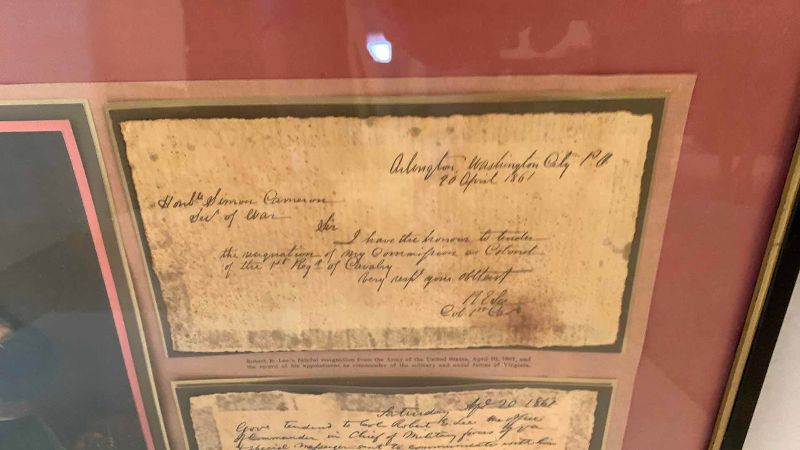 Arlington, Washington City P.O
20 April 1861
Honble Simon Cameron
Secy of War
Sir
I have the honour to tender
the resignation of my Commission as Colonel
of the 1st Regt of Cavalry
Very respy your obt servt
R E Lee
Col 1st Cavy
Robert E. Lee's fateful resignation from the Army of the United States, April 20, 1861, and
the record of his appointment as commander of the military and naval forces of Virginia.
Saturday Apl 20 1861
Govr tendered to Col Robert E Lee the office
of Commander in Chief of Military forces of Va
special messenger sent to communicate with him